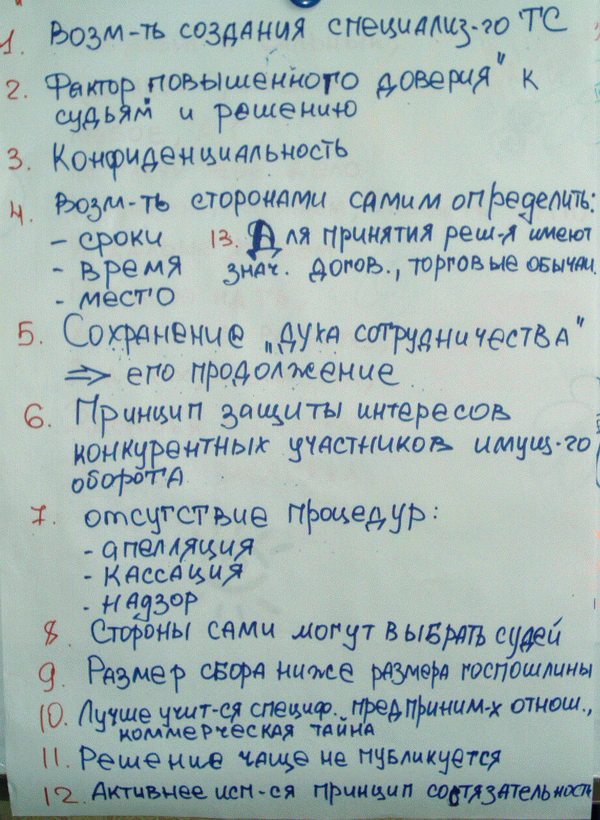 1. Возм-ть создания специализ-го ТС
2. Фактор "повышенного доверия" к
судьям и решению
3. Конфиденциальность
4. Возм-ть сторонами самим определить:
- сроки
- время
- место
13. Для принятия реш-я имеют
знач. догов., торговые обычаи.
5. Сохранение „духа сотрудничества"
⇒ его продолжение
6. Принцип защиты интересов
конкурентных участников имущ-го
оборота
7. отсутствие процедур:
- апелляция
- кассация
- надзор
8. Стороны сами могут выбрать судей
9. Размер сбора ниже размера госпошлины
10. Лучше учит-ся специф. предприним-х отнош.,
коммерческая тайна
11. Решение чаще не публикуется
12. Активнее исп-ся принцип состязательности